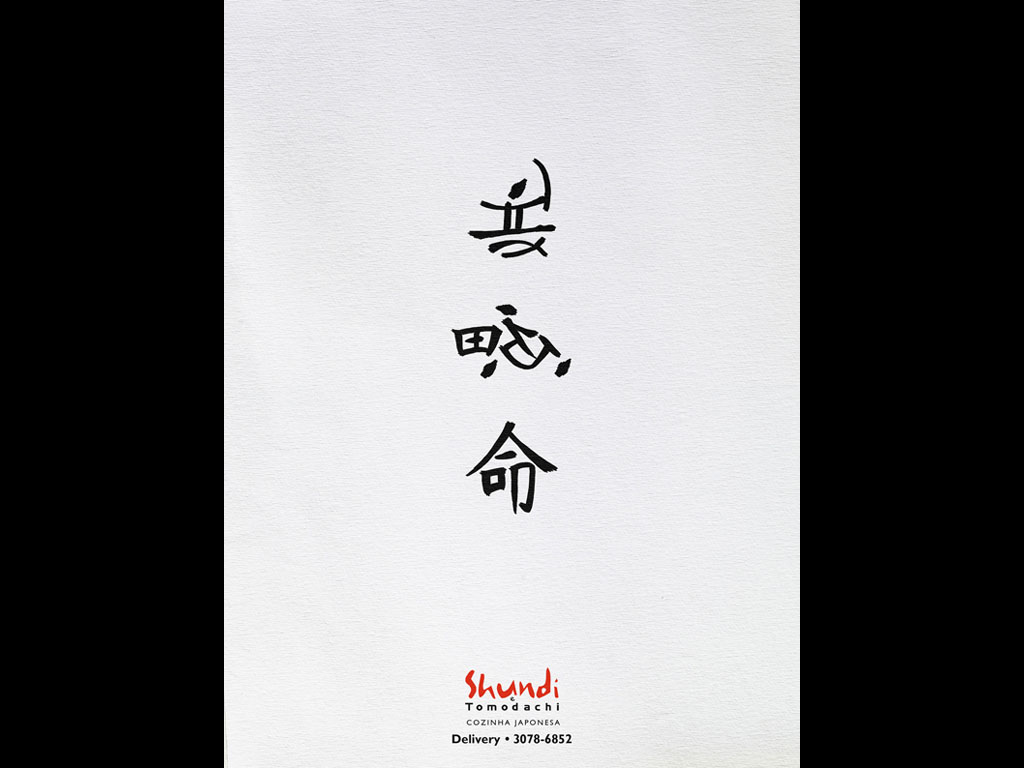 命
Shundi
e
Tomodachi
COZINHA JAPONESA
Delivery • 3078-6852